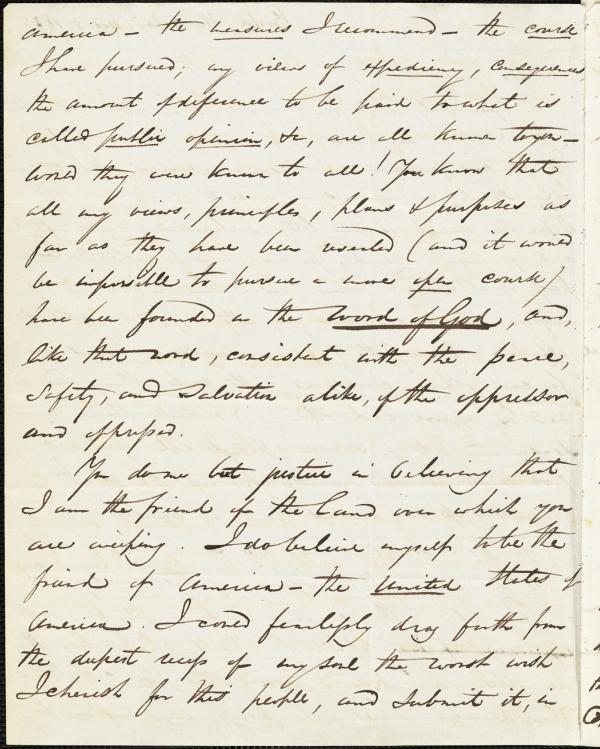 America – the measures I recommend – the course
I have pursued; my views of expediency, consequences
the amount of deference to be paid to what is
called public opinion, &c, are all known to you –
would they were known to all! You know that
all my views, principles, plans & purposes as
far as they have been revealed (and it would
be impossible to pursue a more open course)
have been founded on the word of God, and,
like that word, consistent with the peace,
safety, and salvation alike, of the oppressor
and oppressed.
You do me but justice in believing that
I am the friend of the land over which you
are weeping. I do believe myself to be the
friend of America – the United States of
America. I could fearlessly drag forth from
the deepest recess of my soul the worst wish
I cherish for this people, and submit it, in